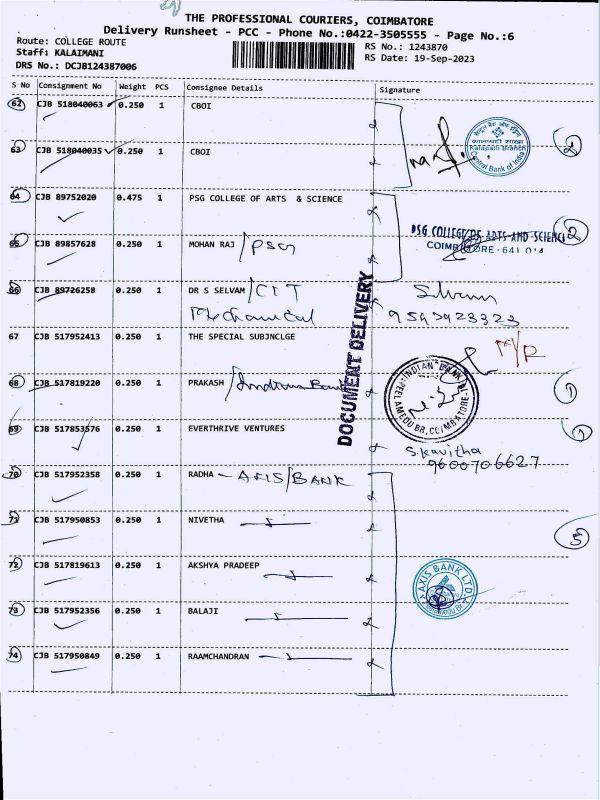 THE PROFESSIONAL COURIERS, COIMBATORE
Delivery Runsheet - PCC - Phone No.:0422-3505555 - Page No.:6
Route: COLLEGE ROUTE
RS No.: 1243870
Staff: KALAIMANI
RS Date: 19-Sep-2023
DRS No.: DCJB124387006
S No Consignment No Weight PCS Consignee Details Signature
62 CJB 518040063 0.250 1 CBOI
63 CJB 518040035 0.250 1 CBOI
Kalapatti Branch
Central Bank of India
2
64 CJB 89752020 0.475 1 PSG COLLEGE OF ARTS & SCIENCE
PSG COLLEGE OF ARTS AND SCIENCE
COIMBATORE - 641 014
2
65 CJB 89857628 0.250 1 MOHAN RAJ / PSG
66 CJB 89726258 0.250 1 DR S SELVAM / CIT
Mechanical
Selvam
DOCUMENT DELIVERY
67 CJB 517952413 0.250 1 THE SPECIAL SUBJNCLGE
68 CJB 517819220 0.250 1 PRAKASH / Indian Bank
INDIAN BANK
PEELAMEDU BR, COIMBATORE
1
69 CJB 517853576 0.250 1 EVERTHRIVE VENTURES
1
S. Kavitha
9600706627
70 CJB 517952358 0.250 1 RADHA - AXIS/BANK
71 CJB 517950853 0.250 1 NIVETHA
5
72 CJB 517819613 0.250 1 AKSHYA PRADEEP
AXIS BANK LTD
73 CJB 517952356 0.250 1 BALAJI
74 CJB 517950849 0.250 1 RAAMCHANDRAN